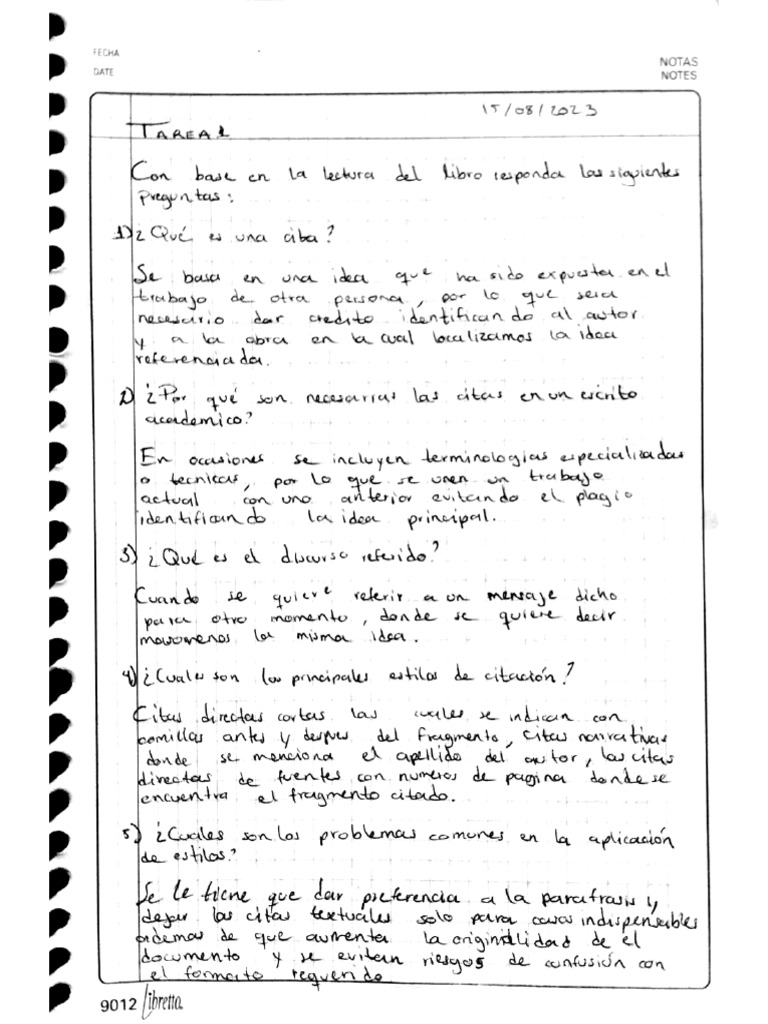 FECHA
DATE
NOTAS
NOTES
15/08/2023
TAREA 1
Con base en la lectura del libro responda las siguientes
preguntas:
1) ¿Qué es una cita?
Se basa en una idea que ha sido expuesta en el
trabajo de otra persona, por lo que sera
necesario dar credito identificando al autor
y a la obra en la cual localizamos la idea
referenciada.
2) ¿Por qué son necesarias las citas en un escrito
academico?
En ocasiones se incluyen terminologias especializadas
o tecnicas, por lo que se unen un trabajo
actual con uno anterior evitando el plagio
identificando la idea principal.
3) ¿Qué es el discurso referido?
Cuando se quiere referir a un mensaje dicho
para otro momento, donde se quiere decir
la misma idea.
4) ¿Cuales son los principales estilos de citación?
Citas directas cortas las cuales se indican con
comillas antes y despues del fragmento, citas narrativas
donde se menciona el apellido del autor, las citas
directas de fuentes con numeros de pagina donde se
encuentra el fragmento citado.
5) ¿Cuales son los problemas comunes en la aplicación
de estilos?
Se le tiene que dar preferencia a la parafrasis y
dejar las citas textuales solo para casos indispensables
ademas de que aumenta la originalidad de el
documento y se evitan riesgos de confusión con
el formato requerido
9012 Libretta